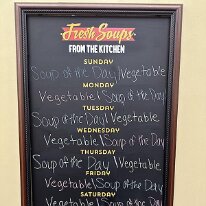 Fresh Soups
FROM THE KITCHEN
SUNDAY
Soup of the Day/Vegetable
MONDAY
Vegetable/Soup of the Day
TUESDAY
Soup of the Day/Vegetable
WEDNESDAY
Vegetable/Soup of the Day
THURSDAY
Soup of the Day/Vegetable
FRIDAY
Vegetable/Soup of the Day
SATURDAY
Vegetable/Soup of the Day